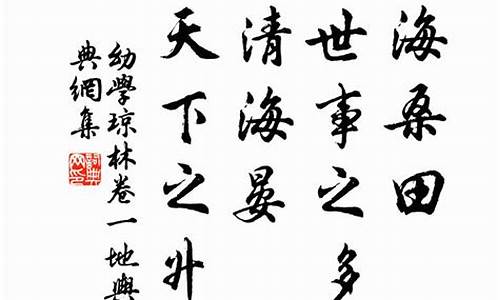 海桑田
世事之多
清海晏
天下之升
幼學瓊林卷一地輿
典網集